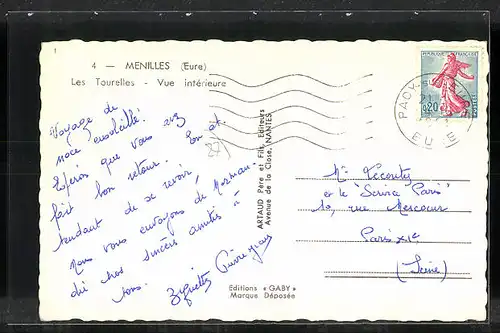 1
4 - MENILLES (Eure)
Les Tourelles - Vue intérieure
Voyage de
noce ensoleillé.
Espérons que vous avez
fait bon retour. En at-
tendant de se revoir,
Nous vous envoyons de Norman-
die nos sincères amitiés à
tous.
(27)
ARTAUD Père et Fils, Editeurs
Avenue de la Close, NANTES
Editions « GABY »
Marque Déposée
REPUBLIQUE FRANÇAISE
0,20
POSTES
PACY-
EURE
et le "Service Paris"
10, rue Mercoeur
Paris XIe
(Seine)